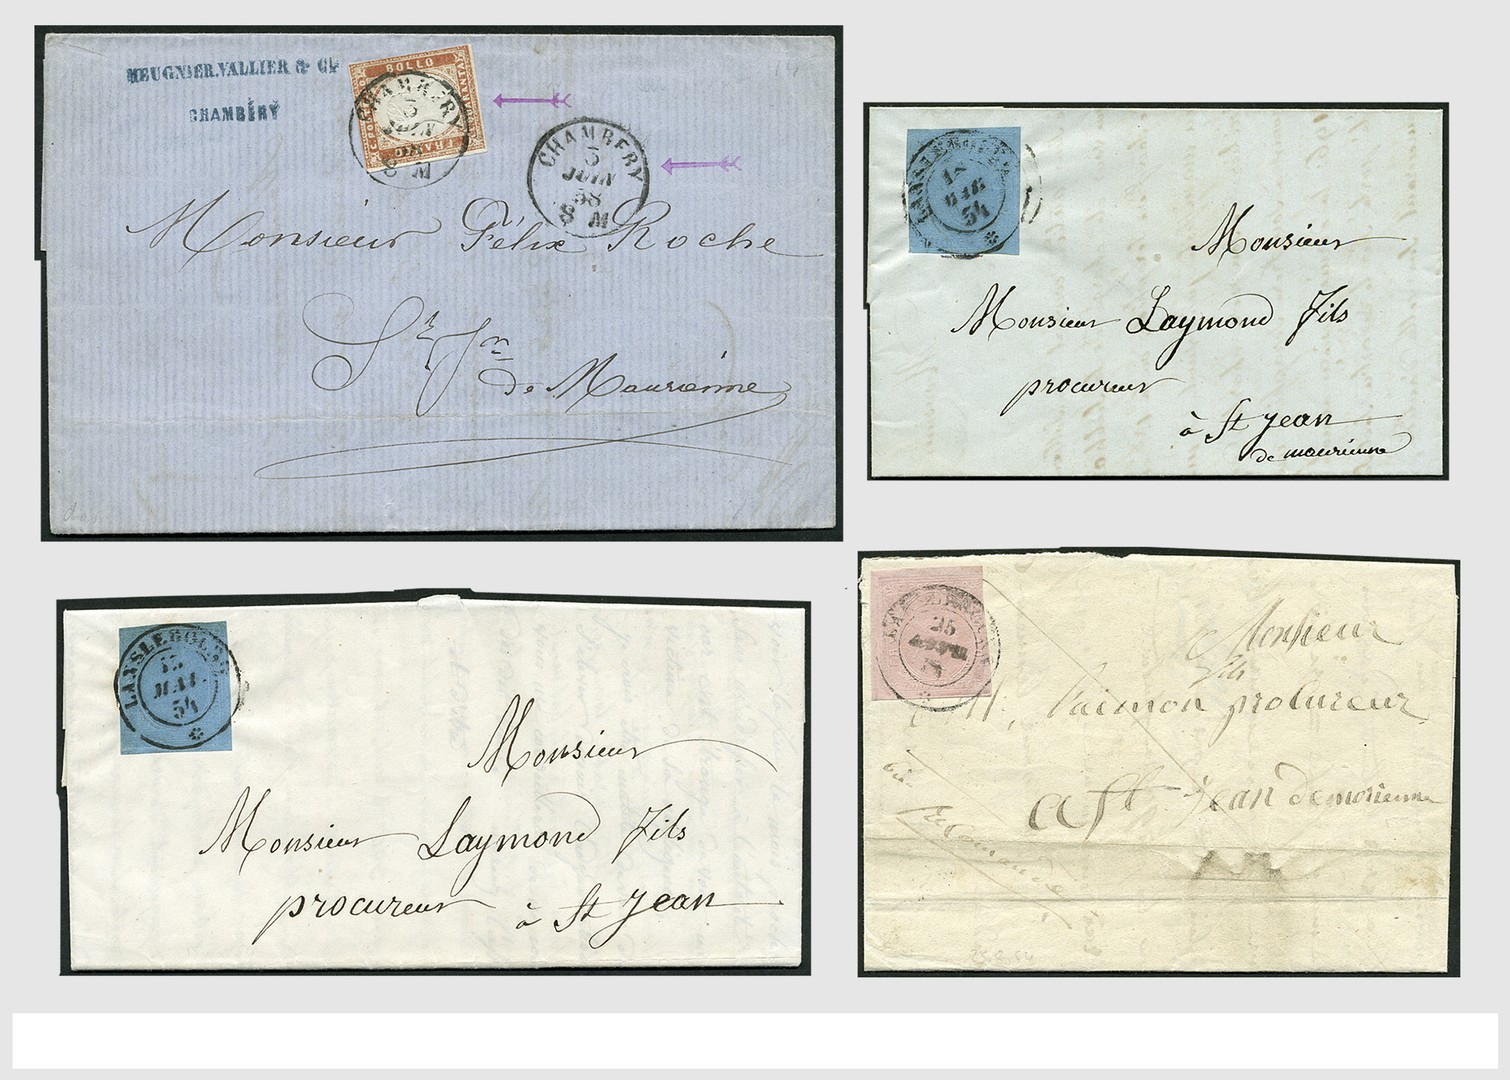 MEUGNIER.VALLIER & Cie
CHAMBÉRY
BOLLO
C.QUARANTA
FRANCO
C.40
CHAMBERY
5
JUIN
58
8 M
CHAMBERY
5
JUIN
58
8 M
Monsieur Félix Roche
St Jn
de Maurienne
LANSLEBOURG
18
54
Monsieur
Monsieur Laymond fils
procureur
à St jean
de maurienne
LANSLEBOURG
MAI
54
Monsieur
Monsieur Laymond fils
procureur à St jean
25
Monsieur
fils
Raimon procureur
a St jean de morienne